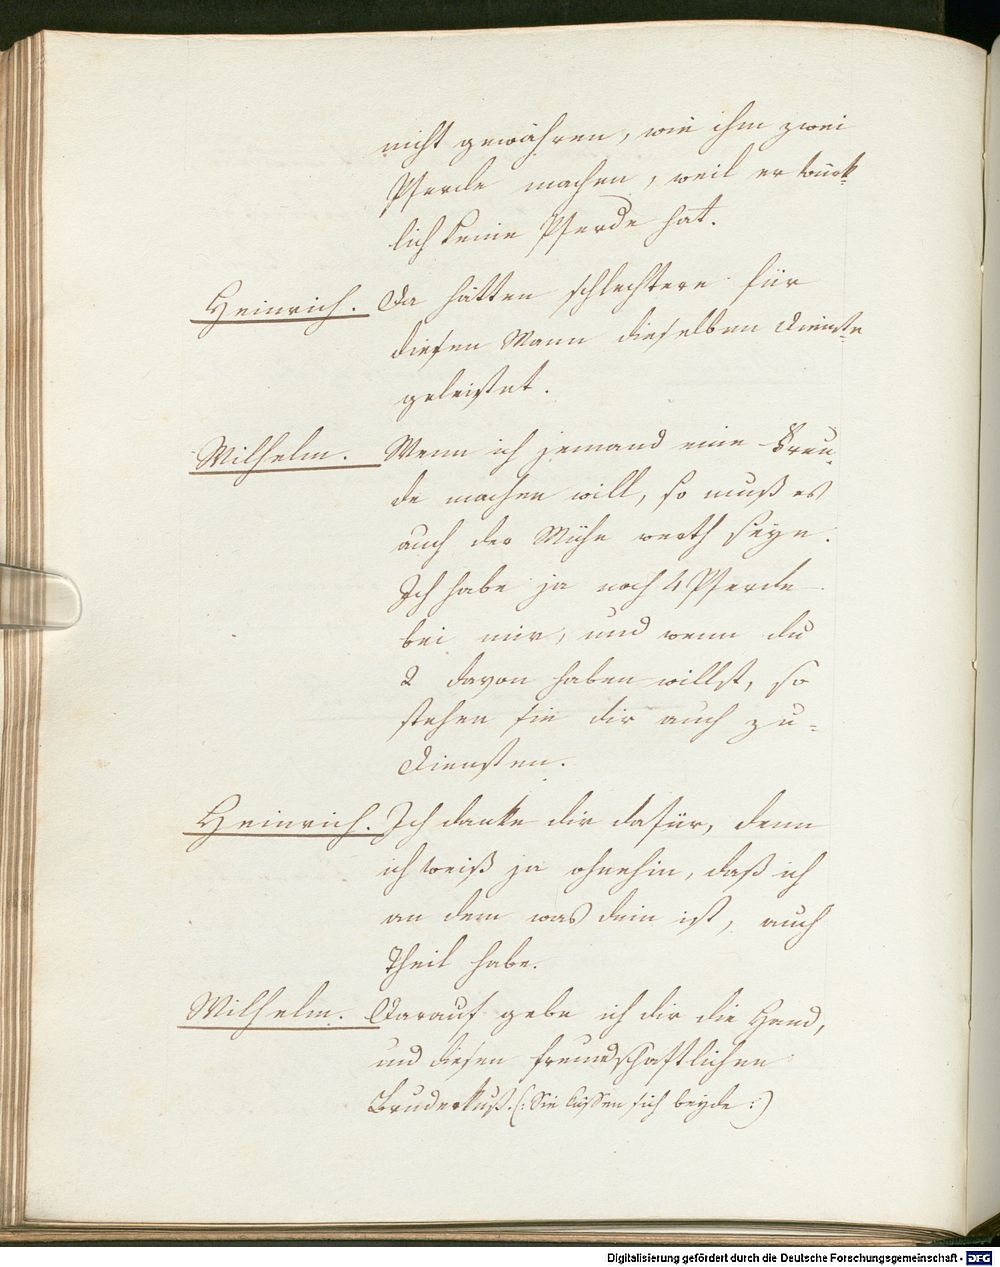 nicht gewähren, wie ihm zwei
Pferde machen, weil er würk-
lich keine Pferde hat.
Heinrich. Da hätten schlechtere für
diesen Mann dieselben Dienste
geleistet.
Wilhelm. Wenn ich jemand eine Freu-
de machen will, so muß es
auch der Mühe werth seyn.
Ich habe ja noch 4 Pferde
bei mir, und wenn du
2 davon haben willst, so
stehen sie dir auch zu-
Diensten.
Heinrich. Ich danke dir dafür, denn
ich weiß ja ohnehin, daß ich
an dem was dein ist, auch
Theil habe.
Wilhelm. Darauf gebe ich dir die Hand,
und diesen freundschaftlichen
Bruderkuß. (: Sie küssen sich beyde :)
Digitalisierung gefördert durch die Deutsche Forschungsgemeinschaft - DFG